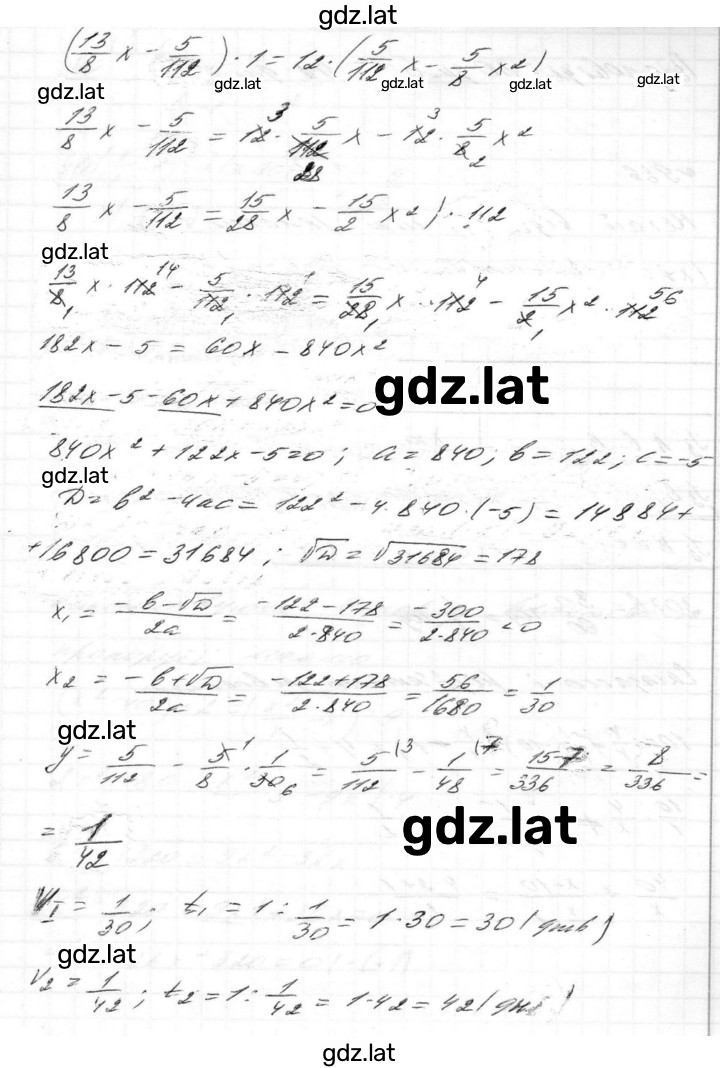 gdz.lat
(13/8 x − 5/112) · 1 = 12 · (5/112 x − 5/8 x²)
gdz.lat gdz.lat gdz.lat gdz.lat
13/8 x − 5/112 = 12³ · 5/112 28 x − 12³ · 5/8 2 x²
13/8 x − 5/112 = 15/28 x − 15/2 x² ) · 112
gdz.lat
13/8 1 x · 112 14 − 5/112 1 · 112 1 = 15/28 1 x · 112 4 − 15/2 1 x² · 112 56
182x − 5 = 60x − 840x²
gdz.lat
182x − 5 − 60x + 840x² = 0
840x² + 122x − 5 = 0 ; a = 840; b = 122; c = −5
gdz.lat
D = b² − 4ac = 122² − 4 · 840 · (−5) = 14884 +
+ 16800 = 31684 ; √D = √31684 = 178
x₁ = −b − √D / 2a = −122 − 178 / 2·840 = −300 / 2·840 < 0
x₂ = −b + √D / 2a = −122 + 178 / 2·840 = 56/1680 = 1/30
gdz.lat
y = 5/112 − 5/8 1 · 1/30 6 = 5/112 (3 − 1/48 (7 = 15 − 7 / 336 = 8/336 =
= 1/42
gdz.lat
V₁ = 1/30 ; t₁ = 1 : 1/30 = 1 · 30 = 30 (днів)
gdz.lat
V₂ = 1/42 ; t₂ = 1 : 1/42 = 1 · 42 = 42 (дні)
gdz.lat